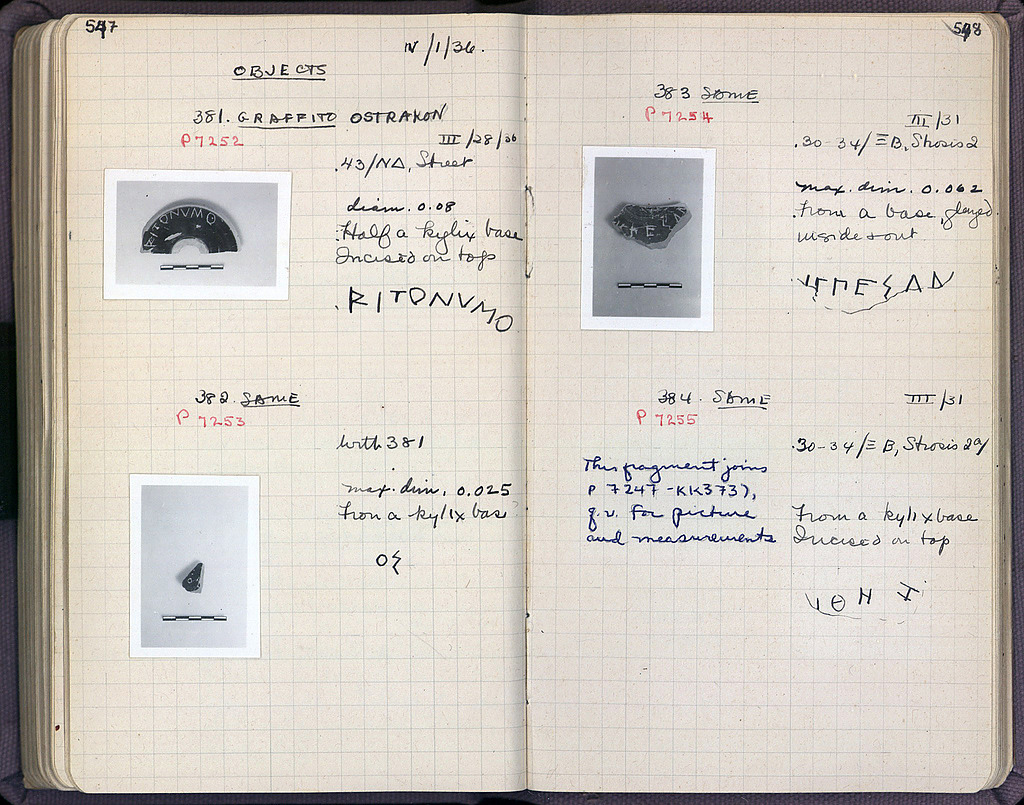 547
IV/1/36.
OBJECTS
381. GRAFFITO OSTRAKON
P 7252
III/28/36
.43/ΝΔ, Street
diam. 0.08
Half a kylix base
Incised on top
RITONVMO
382. SAME
P 7253
with 381
max. dim. 0.025
From a kylix base
Ο Σ
548
383 SAME
P 7254
III/31
.30-34/ΞΒ, Strosis 2
max. dim. 0.062
From a base, glazed
inside & out
384. SAME
P 7255
III/31
.30-34/ΞΒ, Strosis 2a/
This fragment joins
P 7247 - KK373),
q.v. for picture
and measurements
From a kylix base
Incised on top